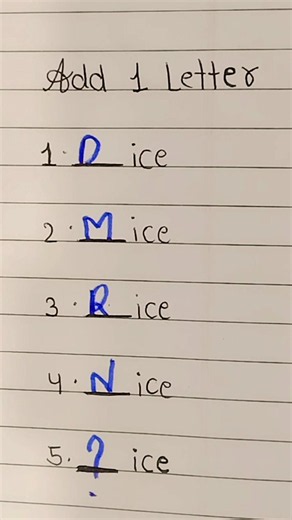 Add 1 Letter
1. D ice
2. M ice
3. R ice
4. N ice
5. ? ice